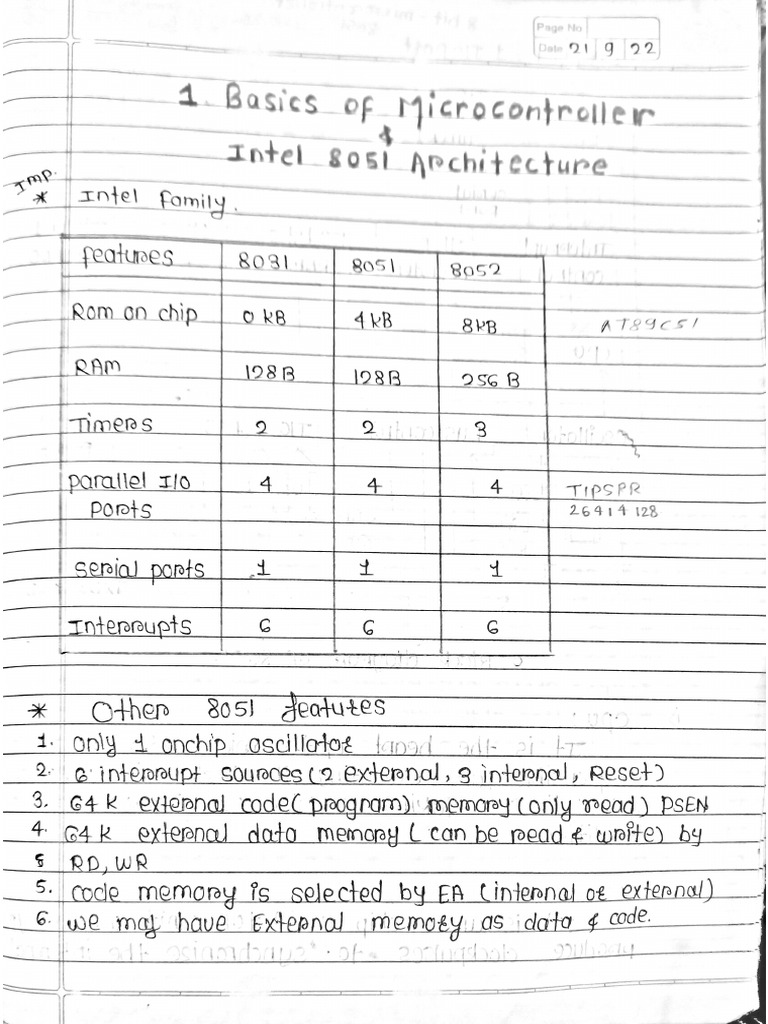 Page No
Date 21 9 22
1. Basics of Microcontroller
&
Intel 8051 Architecture
Imp.
* Intel family.
features 8031 8051 8052
Rom on chip 0 kB 4 kB 8kB AT89C51
RAM 128B 128B 256 B
Timers 2 2 3
parallel I/O 4 4 4 TIPSPR
Ports 26414 128
serial ports 1 1 1
Interrupts 6 6 6
* Other 8051 features
1. only 1 onchip oscillator
2. 6 interrupt sources (2 external, 3 internal, Reset)
3. 64 k external code (program) memory (only read) PSEN
4. 64 k external data memory ( can be read & write) by
5 RD, WR
5. code memory is selected by EA (internal or external)
6. we may have External memory as data & code.